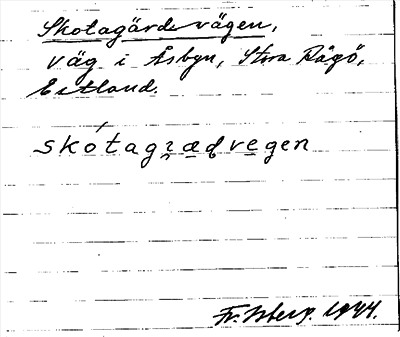 Skotagärdevägen,
väg i Åsbyn, Stora Rågö,
Estland.
skótagꝛædvegen
Fr. Isberg. 1944.